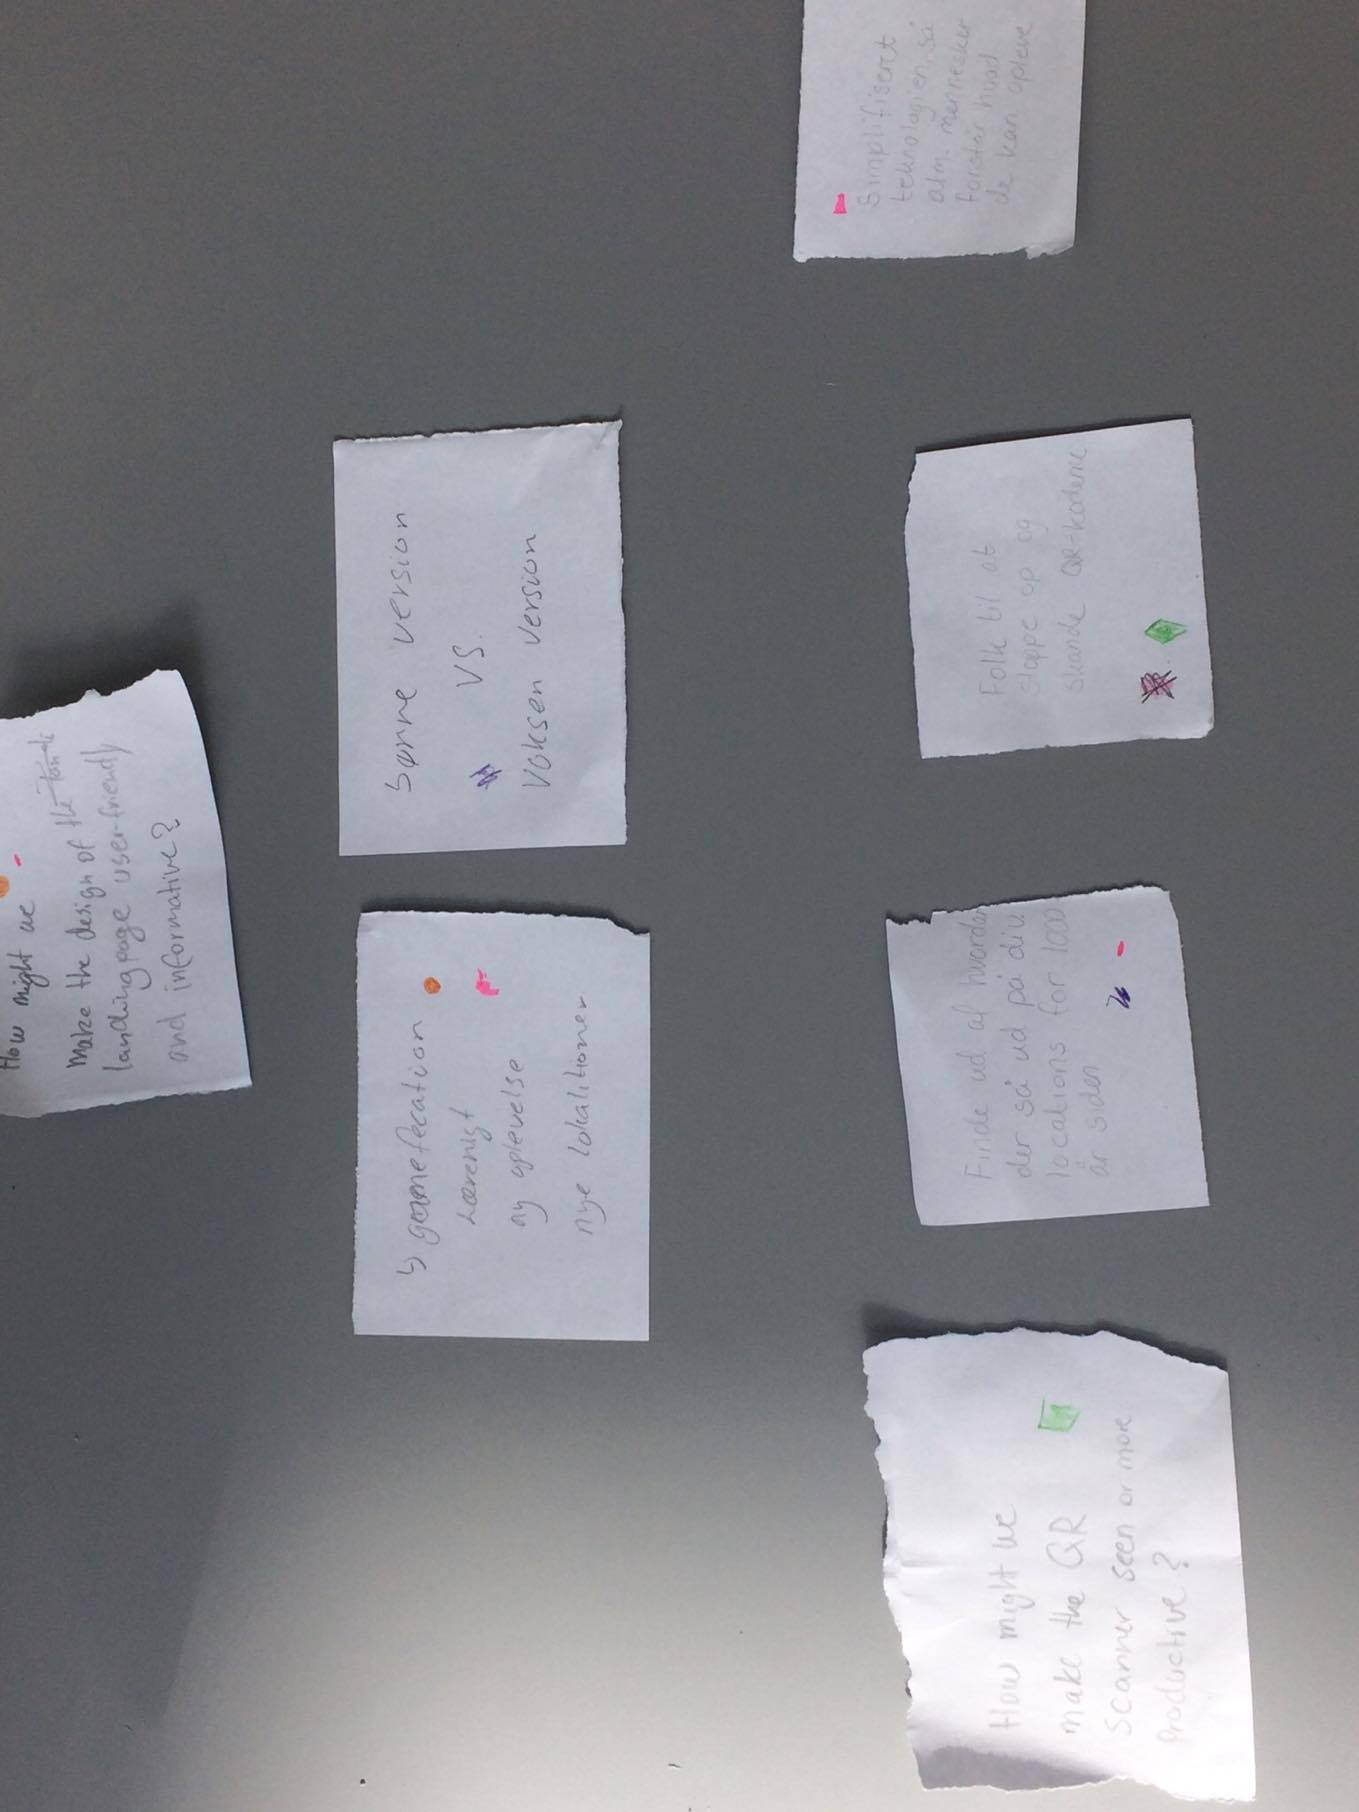 How might we
make the design of the
landingpage user-friendly
and informative?
↳ gamefecation
Lærerigt
ny oplevelse
nye lokalitioner
børne version
VS.
Voksen version
How might we
make the QR
scanner seen or more
productive?
Finde ud af hvordan
der så ud på div.
locations for 1000
år siden
Folk til at
stoppe op og
skande QR-koderne
Simplifiseret
teknologien, så
alm. mennesker
forstår hvad
de kan opleve